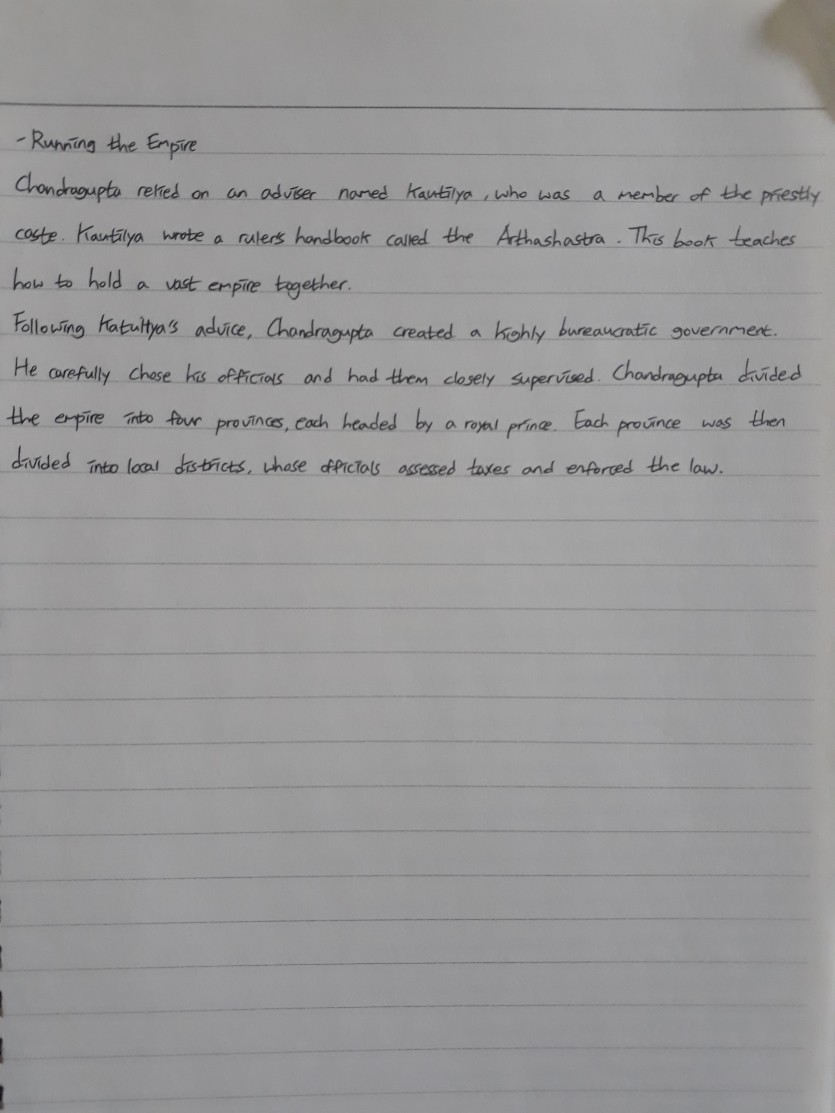 - Running the Empire
Chandragupta relied on an adviser named Kautilya, who was a member of the priestly
caste. Kautilya wrote a rulers handbook called the Arthashastra. This book teaches
how to hold a vast empire together.
Following Katultya's advice, Chandragupta created a highly bureaucratic government.
He carefully chose his officials and had them closely supervised. Chandragupta divided
the empire into four provinces, each headed by a royal prince. Each province was then
divided into local districts, whose officials assessed taxes and enforced the law.